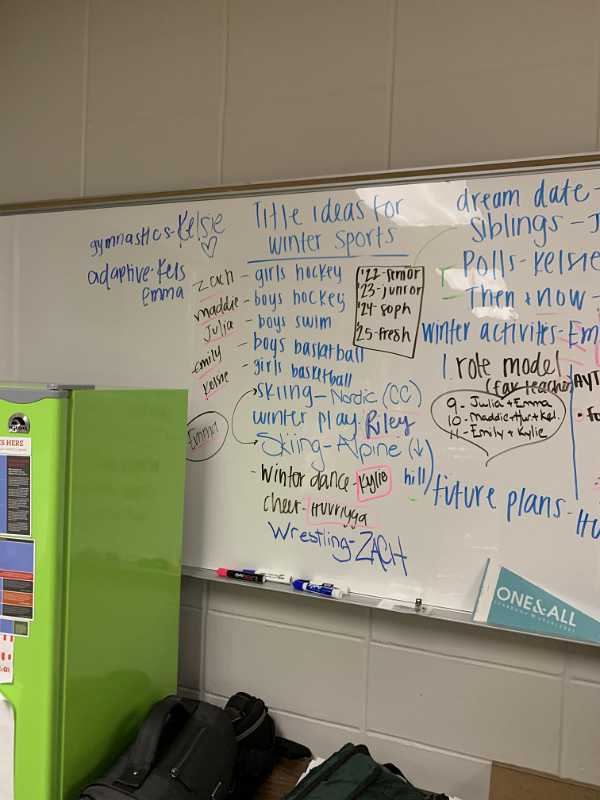 gymnastics-Kelsie
adaptive-Kels
Emma
Title ideas for
winter sports
zach - girls hockey
maddie - boys hockey
Julia - boys swim
emily - boys basketball
Kelsie - girls basketball
Emma
skiing-Nordic (CC)
winter play-Riley
Skiing-Alpine (↓)
hill)
- Winter dance-Kylie
cheer-Hurriyya
Wrestling-ZACH
'22-senior
'23-junior
'24-soph
'25-fresh
dream date-
Siblings-J
Polls-Kelsie
Then & now-
winter activities-Em
1. role model
(fav teacher)
9-Julia & Emma
10-maddie+Hur+Kel.
11-Emily & Kylie
future plans-Hu
ONE&ALL
HERE